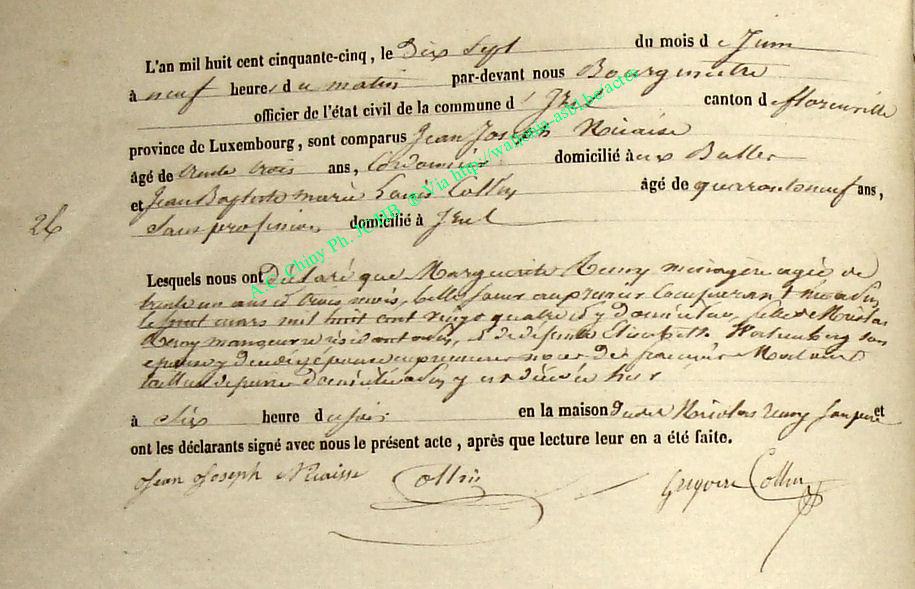 L'an mil huit cent cinquante-cinq, le Dix Sept du mois d e Juin
à neuf heures du matin par-devant nous Bourgmestre
officier de l'état civil de la commune d' canton de florenville
province de Luxembourg, sont comparus Jean Joseph Nicaise
âgé de trente trois ans, Cordonnier domicilié à aux Bulles
et Jean Baptiste marie Louis Collin âgé de quarante neuf ans,
26 Sans profession domicilié à Izel
Lesquels nous ont déclaré que Marguerite Remy ménagère agée de
trente un ans et trois mois, belle soeur au premier Comparant née a
le mars mil huit cent vingt quatre et y domiciliée, fille de Nicolas
Remy résidant et de défunte Elisabeth son
épouse y décédée épouse en premieres noces de françois
domicilié y est décédée hier
à Six heure du soir en la maison dudit Nicolas remy Son père et
ont les déclarants signé avec nous le présent acte, après que lecture leur en a été faite.
Jean Joseph Nicaisse Collin Grégoire Collin
A.E. Chiny Ph. JOMB. @ Via http://wallonia-asbl.be/actes